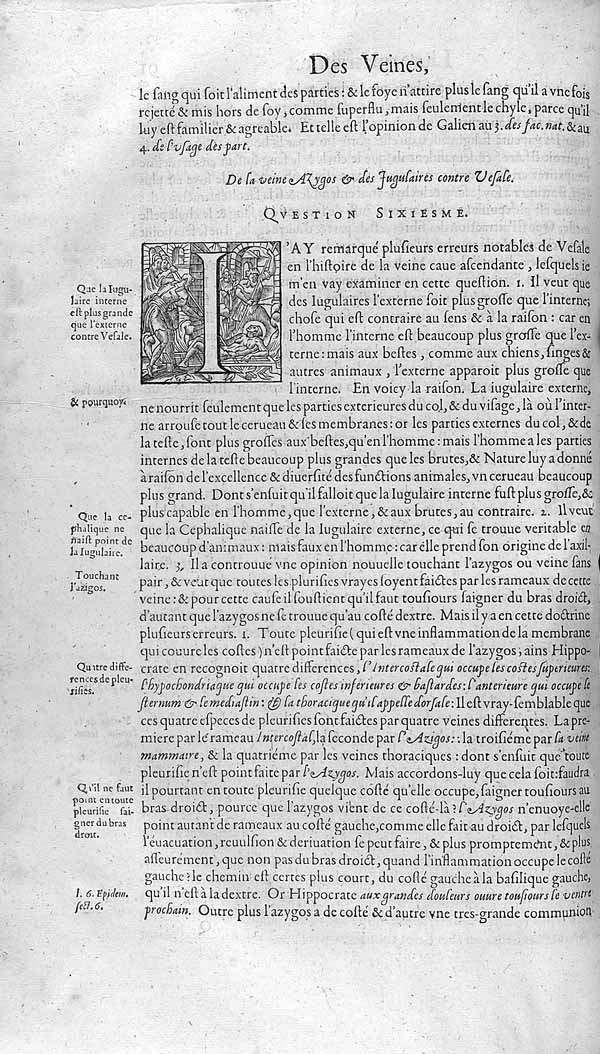 Des Veines,
le ſang qui ſoit l'aliment des parties: & le foye n'attire plus le ſang qu'il a vne fois
rejetté & mis hors de ſoy, comme ſuperflu, mais ſeulement le chyle, parce qu'il
luy eſt familier & agreable. Et telle eſt l'opinion de Galien au 3. des fac. nat. & au
4. de l'vſage des part.
De la veine Azygos & des Jugulaires contre Veſale.
QVESTION SIXIESME.
I'AY remarqué pluſieurs erreurs notables de Veſale
en l'hiſtoire de la veine caue aſcendante, leſquels ie
m'en vay examiner en cette queſtion. 1. Il veut que
des Iugulaires l'externe ſoit plus groſſe que l'interne;
choſe qui eſt contraire au ſens & à la raiſon: car en
l'homme l'interne eſt beaucoup plus groſſe que l'ex-
terne: mais aux beſtes, comme aux chiens, ſinges &
autres animaux, l'externe apparoit plus groſſe que
l'interne. En voicy la raiſon. La iugulaire externe,
ne nourrit ſeulement que les parties exterieures du col, & du viſage, là où l'inter-
ne arrouſe tout le cerueau & ſes membranes: or les parties externes du col, & de
la teſte, ſont plus groſſes aux beſtes, qu'en l'homme: mais l'homme a les parties
internes de la teſte beaucoup plus grandes que les brutes, & Nature luy a donné
à raiſon de l'excellence & diuerſité des functions animales, vn cerueau beaucoup
plus grand. Dont s'enſuit qu'il falloit que la Iugulaire interne fuſt plus groſſe, &
plus capable en l'homme, que l'externe, & aux brutes, au contraire. 2. Il veut
que la Cephalique naiſſe de la Iugulaire externe, ce qui ſe trouue veritable en
beaucoup d'animaux: mais faux en l'homme: car elle prend ſon origine de l'axil-
laire. 3. Il a controuué vne opinion nouuelle touchant l'azygos ou veine ſans
pair, & veut que toutes les pluriſies vrayes ſoyent faictes par les rameaux de cette
veine: & pour cette cauſe il ſouſtient qu'il faut touſiours ſaigner du bras droict,
d'autant que l'azygos ne ſe trouue qu'au coſté dextre. Mais il y a en cette doctrine
pluſieurs erreurs. 1. Toute pleuriſie (qui eſt vne inflammation de la membrane
qui couure les coſtes) n'eſt point faicte par les rameaux de l'azygos; ains Hippo-
crate en recognoit quatre differences, l'Intercoſtale qui occupe les coſtes ſuperieures:
l'hypochondriaque qui occupe les coſtes inferieures & baſtardes: l'anterieure qui occupe le
ſternum & le mediaſtin: & la thoracique qu'il appelle dorſale: Il eſt vray-ſemblable que
ces quatre eſpeces de pleuriſies ſont faictes par quatre veines differentes. La pre-
miere par le rameau Intercoſtal, la ſeconde par l'Azigos: la troiſiéme par la veine
mammaire, & la quatriéme par les veines thoraciques: dont s'enſuit que toute
pleuriſie n'eſt point faite par l'Azygos. Mais accordons-luy que cela ſoit: faudra
il pourtant en toute pleuriſie quelque coſté qu'elle occupe, ſaigner touſiours au
bras droict, pource que l'azygos vient de ce coſté-là? l'Azygos n'enuoye-elle
point autant de rameaux au coſté gauche, comme elle fait au droict, par leſquels
l'éuacuation, reuulſion & deriuation ſe peut faire, & plus promptement, & plus
aſſeurement, que non pas du bras droict, quand l'inflammation occupe le coſté
gauche? le chemin eſt certes plus court, du coſté gauche à la baſilique gauche,
qu'il n'eſt à la dextre. Or Hippocrate aux grandes douleurs ouure touſiours le ventre
prochain. Outre plus l'azygos a de coſté & d'autre vne tres-grande communion
Que la Iugu-
laire interne
eſt plus grande
que l'externe
contre Veſale.
& pourquoy.
Que la ce-
phalique ne
naiſt point de
la Iugulaire.
Touchant
l'azigos.
Quatre diffe-
rences de pleu-
riſies.
Qu'il ne faut
point en toute
pleuriſie ſai-
gner du bras
droit.
l. 6. Epidem.
ſect. 6.